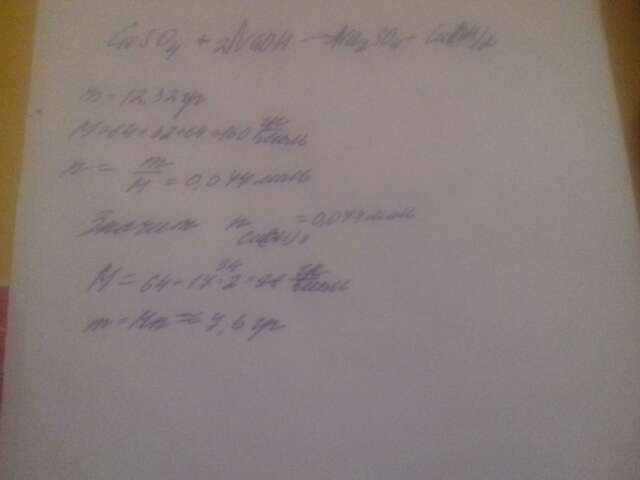 CuSO4 + 2NaOH → Na2SO4 + Cu(OH)2
m = 12,32 гр
M = 64 + 32 + 64 = 160 гр/моль
n = m/M = 0,077 моль
Значит n Cu(OH)2 = 0,077 моль
M = 64 + 17·2 = 98 гр/моль
m = Mn = 7,6 гр